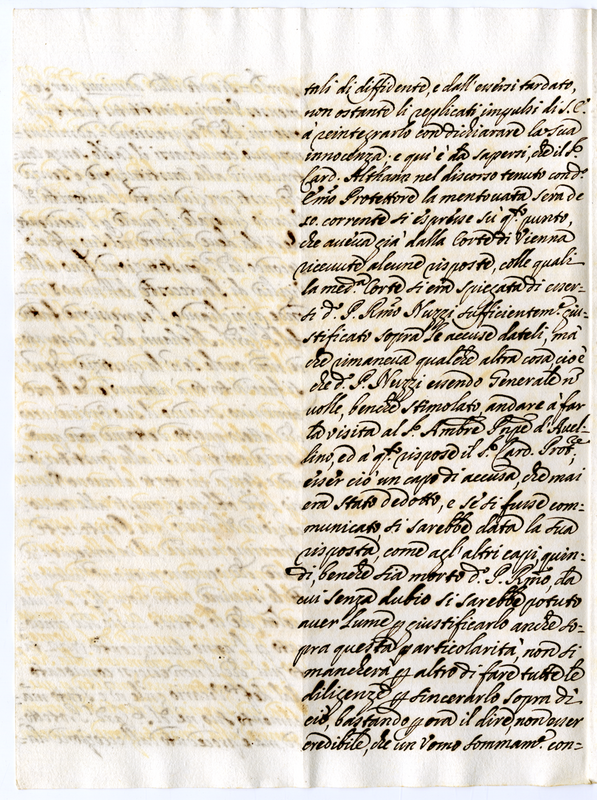 tali di diffidente, e dall'essersi tardato,
non ostante li replicati impulsi di S. E.
a reintegrarlo con dichiarare la sua
innocenza: e qui è da sapersi, che il S.
Card. Althann nel discorso tenuto con d.º
Emo Protettore la mentovata sera de
20. corrente si espresse sù q.to punto,
che aveva già dalla Corte di Vienna
ricevute alcune risposte, colle quali
la med.a Corte si era spiegata di esser-
si d.º P. Rmo Nuzzi sufficientem.te giu-
stificato sopra le accuse dateli, ma
che rimaneva qualche altra cosa, cioè
che d.º P. Nuzzi essendo Generale nõ
volle, benche stimolato, andare à far
la visita al S. Ambre Pñpe d'Avel-
lino, ed à q.to rispose il S. Card. Prot.re
esser ciò un capo di accusa, che mai
era stato dedotto, e se si fusse com-
municato, si sarebbe data la sua
risposta, come agl'altri capi, quin-
di, benche sia morto d.º P. Rmo, da
cui senza dubio si sarebbe potuto
aver lume p giustificarlo anche so-
pra questa particolarità, non si
mancherà p altro di fare tutte le
diligenze p sincerarlo sopra di
ciò, bastando p ora il dire, non esser
credibile, che un Uomo sommam.te con-